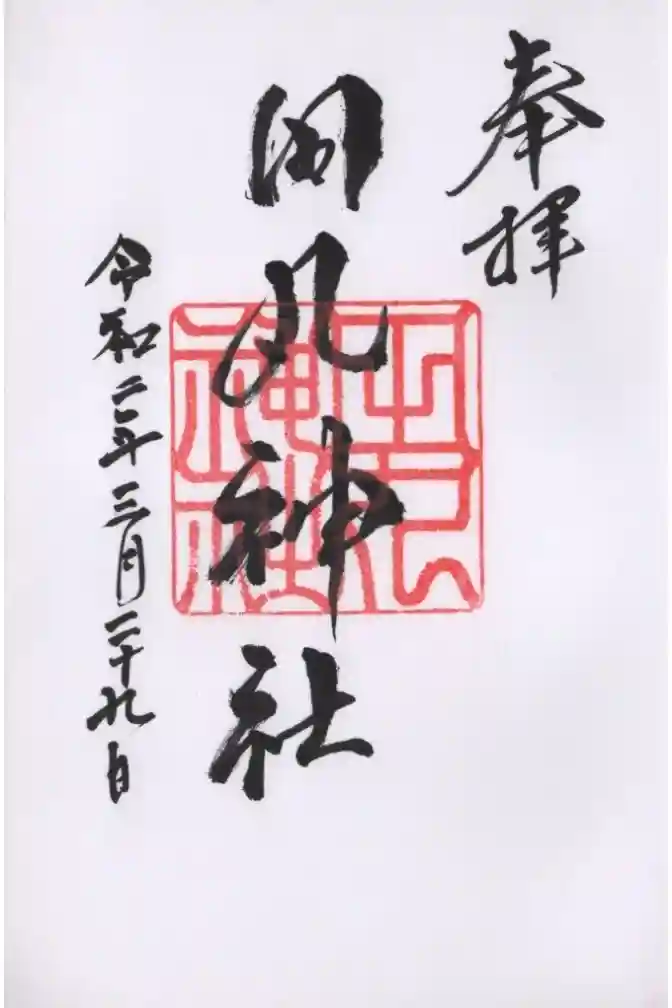 奉拝
神社
令和二年三月二十九日
神社